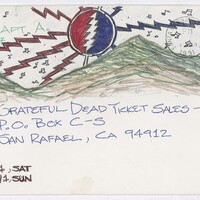 APT. A
GRATEFUL DEAD TICKET SALES -
P.O. BOX C-S
SAN RAFAEL, CA 94912
, SAT
, SUN